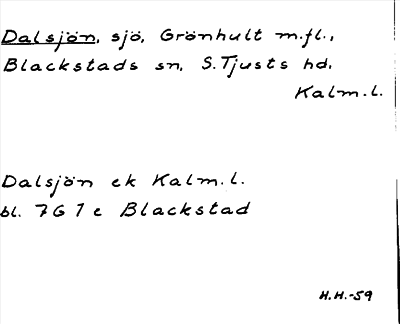 Dalsjön, sjö, Grönhult m.fl.,
Blackstads sn, S. Tjusts hd,
Kalm.l.
Dalsjön ek Kalm.l.
bl. 7G 1 e Blackstad
H.H.-59